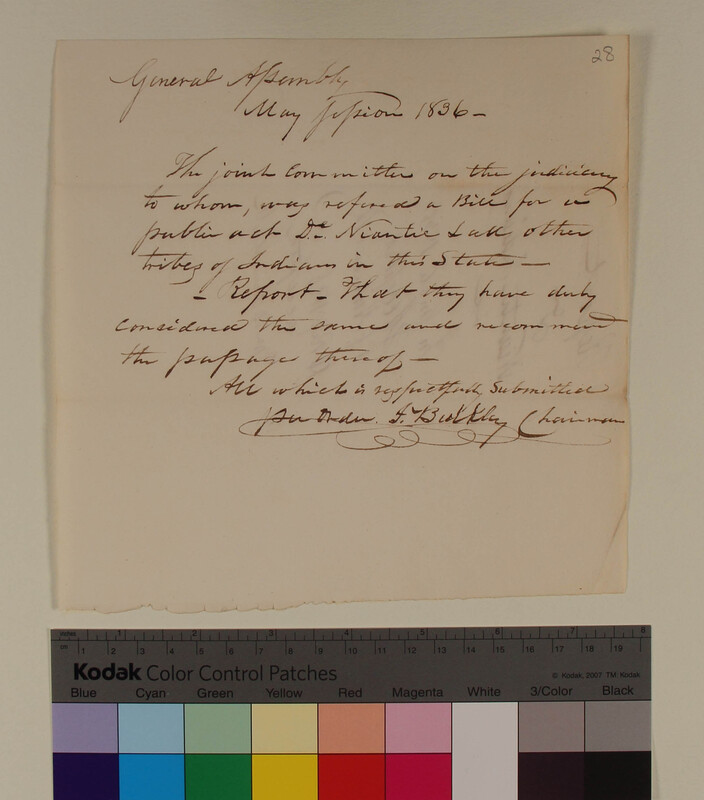 28
General Assembly
May Session 1836 -
The joint Committee on the judiciary
to whom, was refered a Bill for a
public act Do. Niantic & all other
tribes of Indians in this State —
- Report - That they have duly
considered the same and recommend
the passage thereof —
All which is respectfully Submitted
per Order. Bulkley Chairman
mm 1 2 3 4 5 6 7 8
cm 1 2 3 4 5 6 7 8 9 10 11 12 13 14 15 16 17 18 19
Kodak Color Control Patches © Kodak, 2007 TM Kodak
Blue Cyan Green Yellow Red Magenta White 3/Color Black